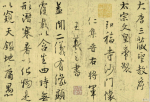 大唐三藏聖教序
太宗文皇帝製
弘福寺沙門懷
仁集晉右將軍
王羲之書
蓋聞二儀有像顯
形潛寒暑以化物是
以窺天鑑地庸愚